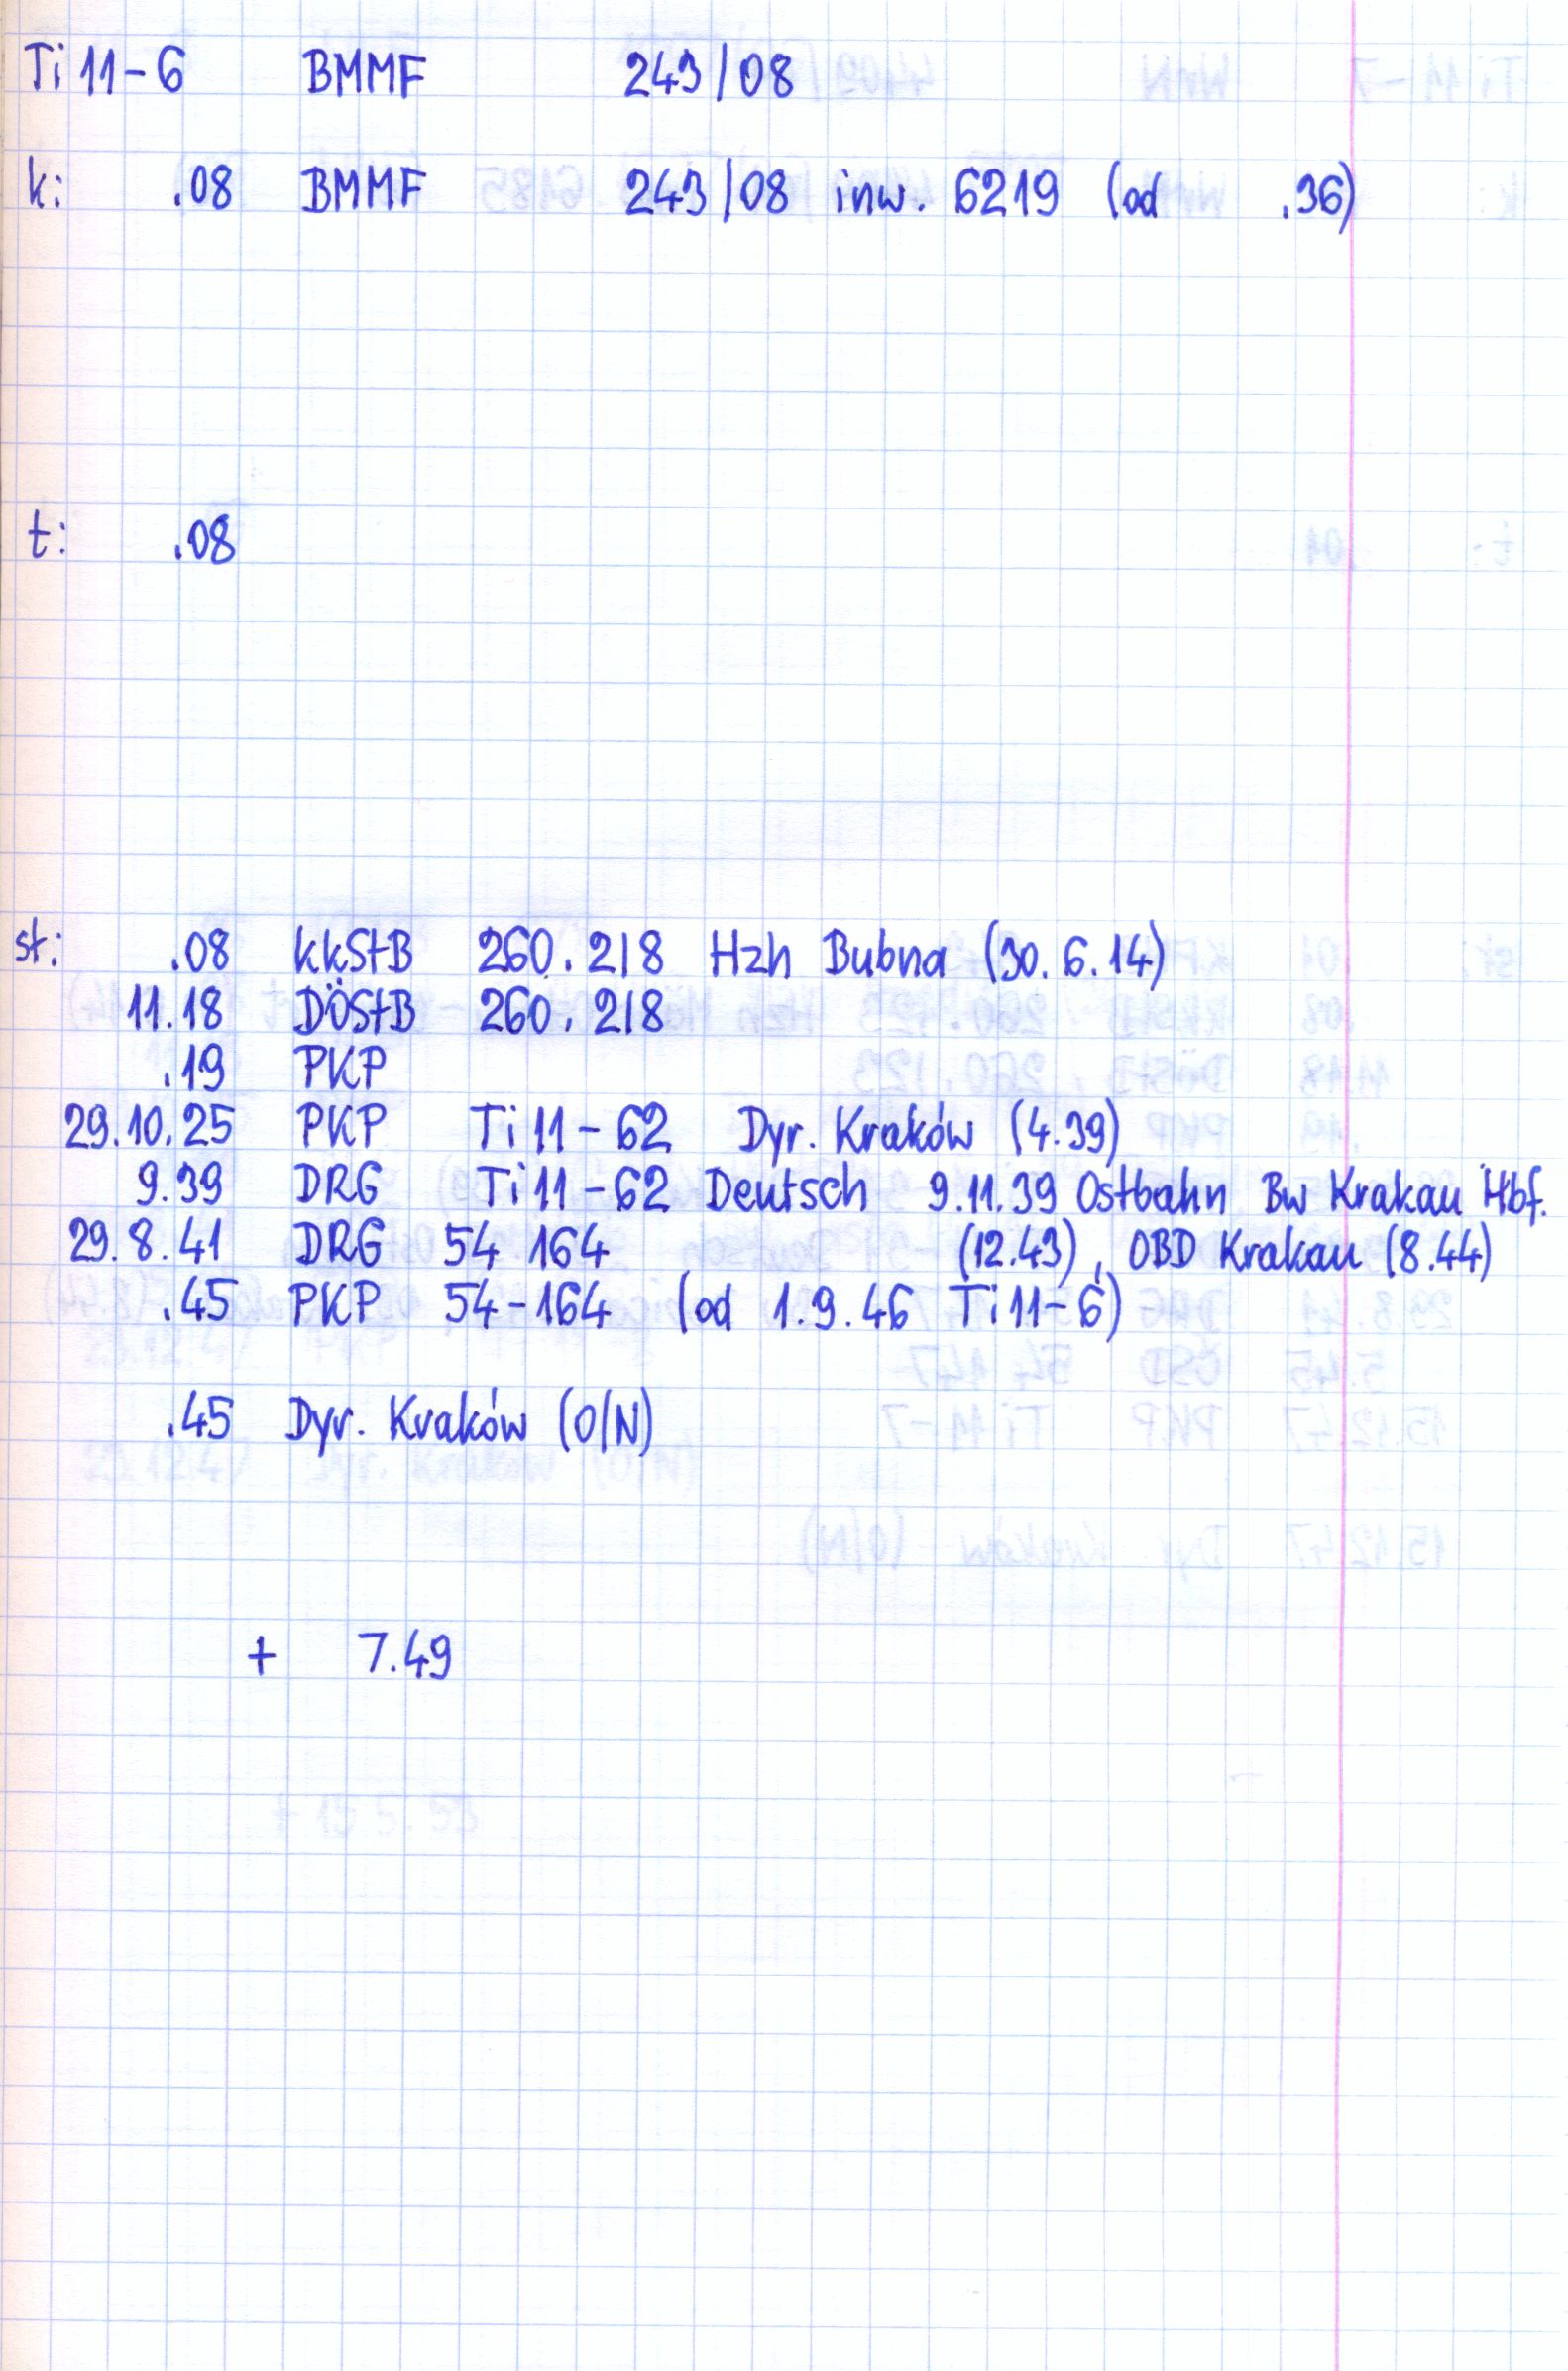 Ti 11-6 BMMF 243/08
k: .08 BMMF 243/08 inw. 6219 (od .36)
t: .08
st: .08 kkStB 260.218 Hzh Bubna (30.6.14)
11.18 DÖStB 260.218
.19 PKP
29.10.25 PKP Ti 11-62 Dyr. Kraków (4.39)
9.39 DRG Ti 11-62 Deutsch 9.11.39 Ostbahn Bw Krakau Hbf.
29.8.41 DRG 54 164 (12.43), OBD Krakau (8.44)
.45 PKP 54-164 (od 1.9.46 Ti 11-6)
.45 Dyr. Kraków (O/N)
+ 7.49